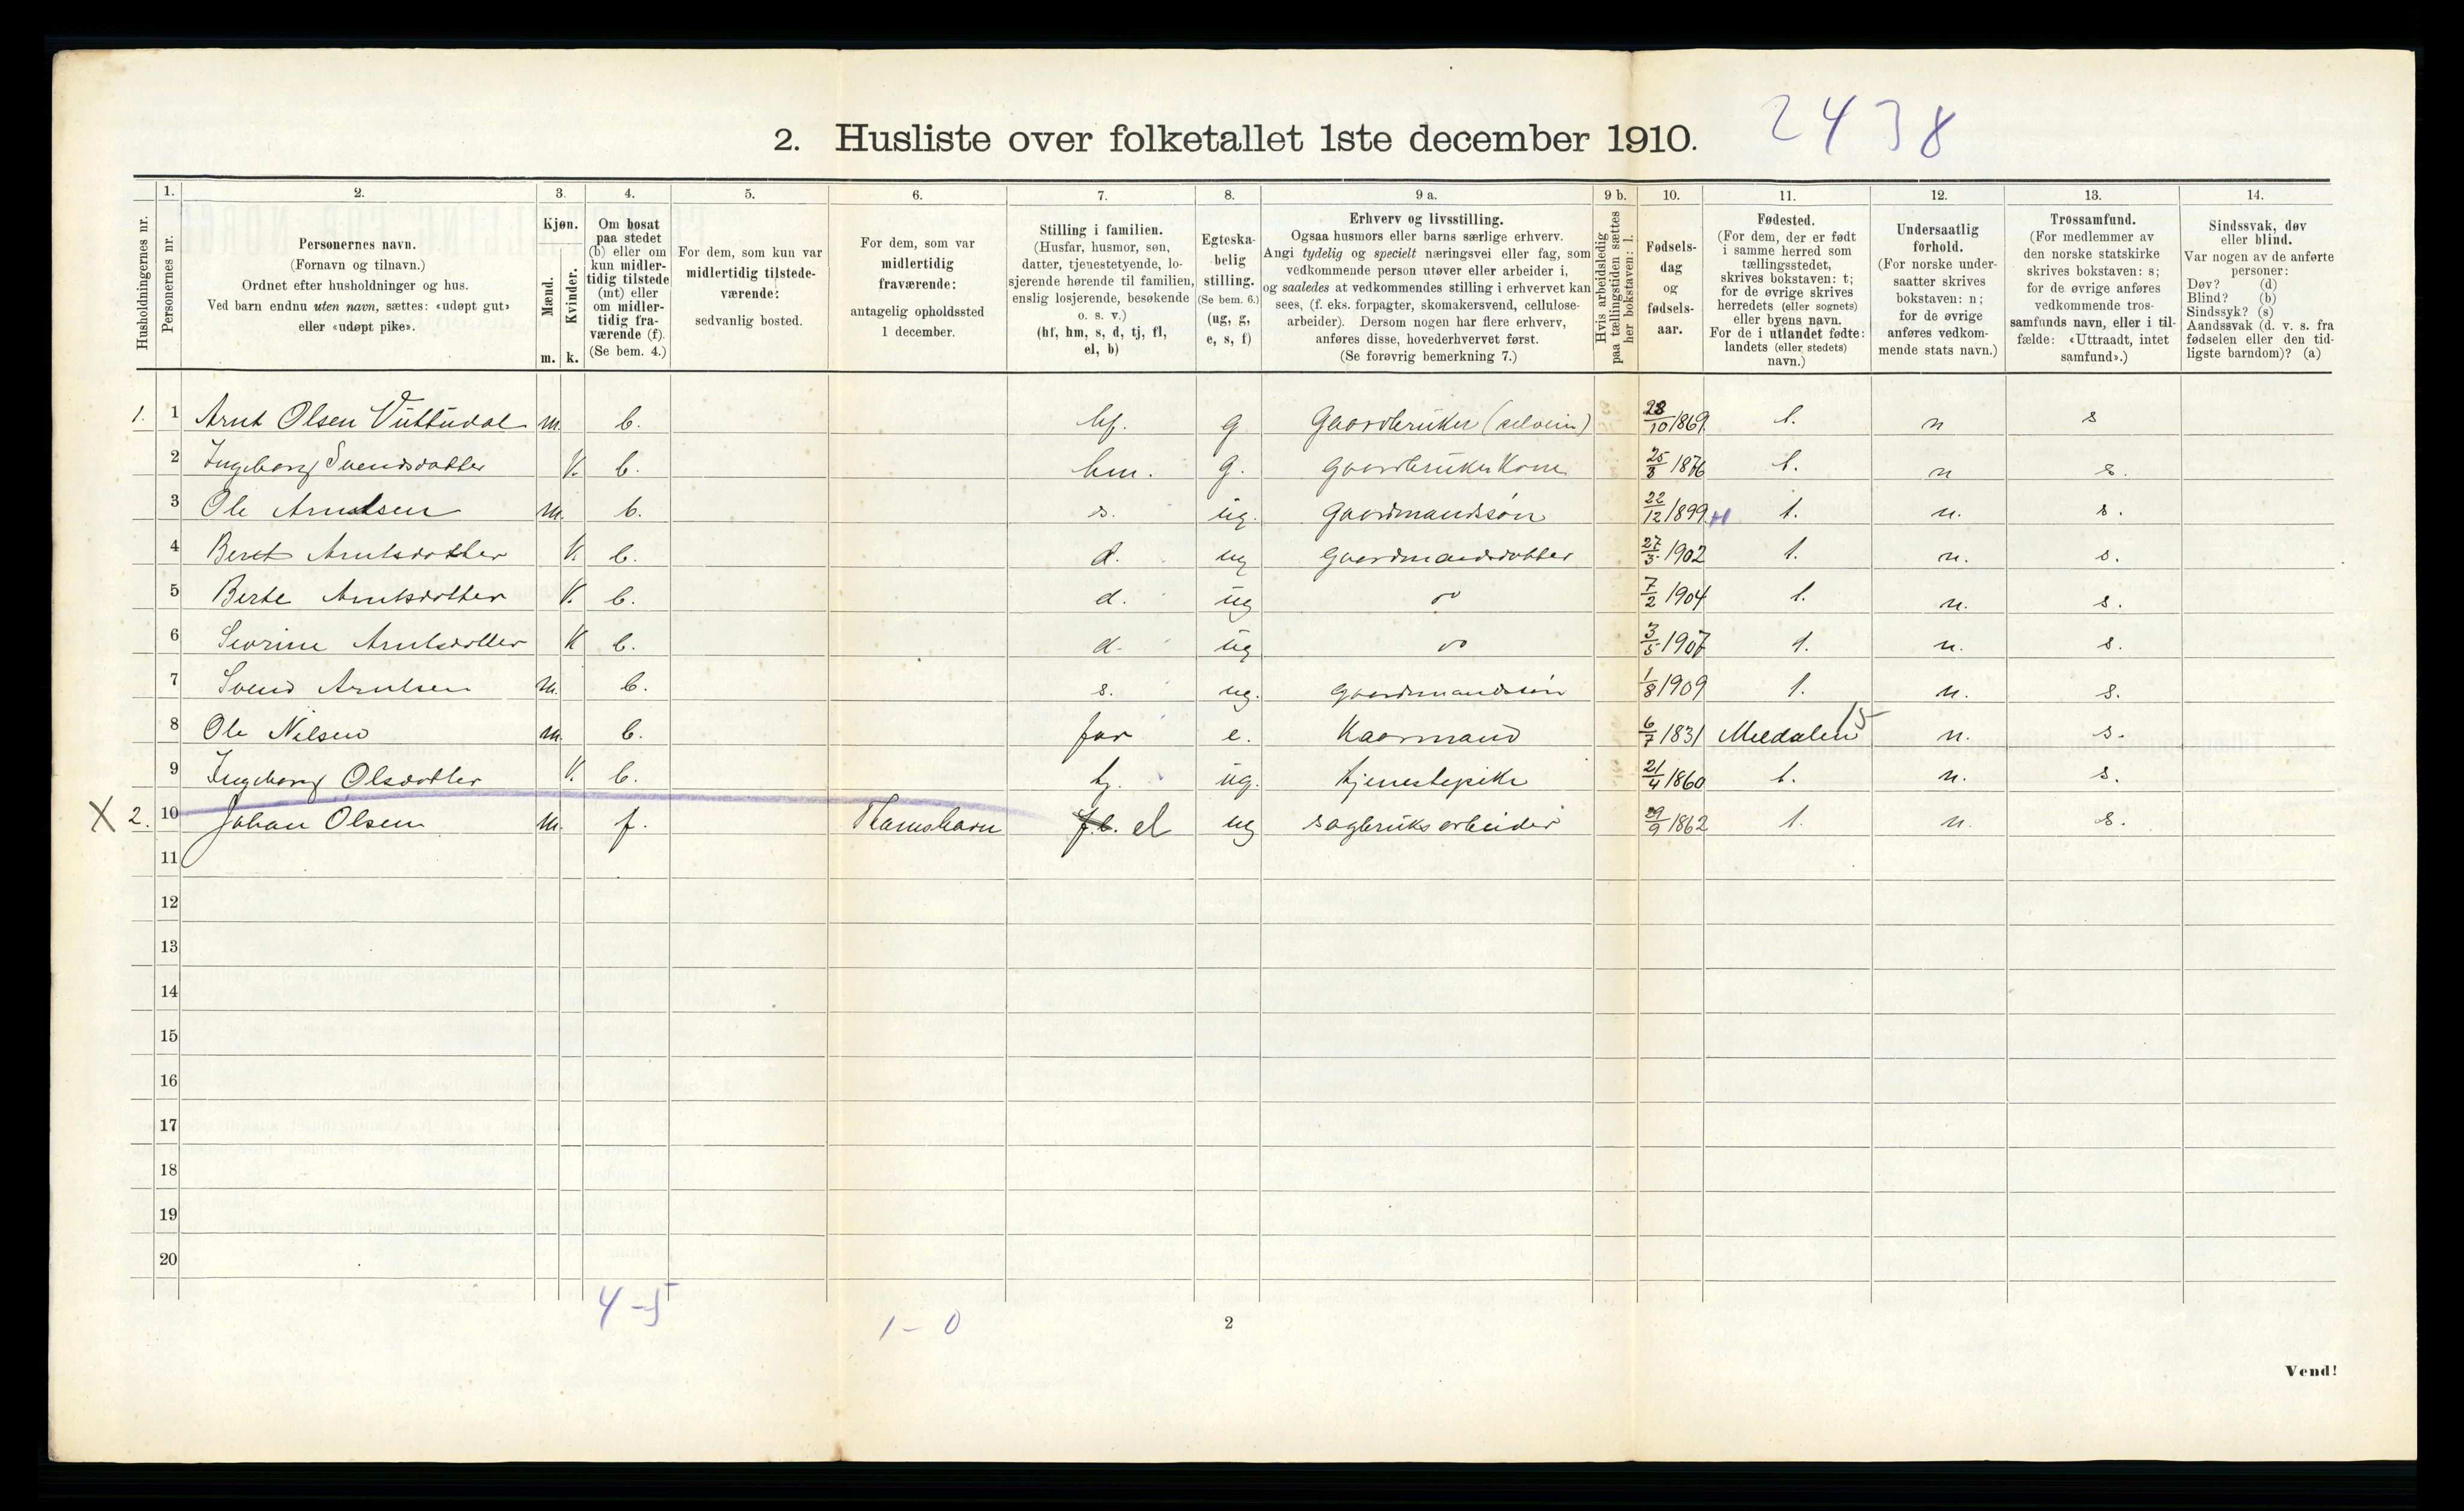 2. Husliste over folketallet 1ste december 1910. 2438
Husholdningernes nr.
1. Personernes nr.
2. Personernes navn. (Fornavn og tilnavn.) Ordnet efter husholdninger og hus. Ved barn endnu uten navn, sættes: «udøpt gut» eller «udøpt pike».
3. Kjøn. Mænd. m. Kvinder. k.
4. Om bosat paa stedet (b) eller om kun midlertidig tilstede (mt) eller om midlertidig fraværende (f). (Se bem. 4.)
5. For dem, som kun var midlertidig tilstedeværende: sedvanlig bosted.
6. For dem, som var midlertidig fraværende: antagelig opholdssted 1 december.
7. Stilling i familien. (Husfar, husmor, søn, datter, tjenestetyende, losjerende hørende til familien, enslig losjerende, besøkende o. s. v.) (hf, hm, s, d, tj, fl, el, b)
8. Egteskabelig stilling. (Se bem. 6.) (ug, g, e, s, f)
9 a. Erhverv og livsstilling. Ogsaa husmors eller barns særlige erhverv. Angi tydelig og specielt næringsvei eller fag, som vedkommende person utøver eller arbeider i, og saaledes at vedkommendes stilling i erhvervet kan sees, (f. eks. forpagter, skomakersvend, cellulosearbeider). Dersom nogen har flere erhverv, anføres disse, hovederhvervet først. (Se forøvrig bemerkning 7.)
9 b. Hvis arbeidsledig paa tællingstiden sættes her bokstaven: l.
10. Fødselsdag og fødselsaar.
11. Fødested. (For dem, der er født i samme herred som tællingsstedet, skrives bokstaven: t; for de øvrige skrives herredets (eller sognets) eller byens navn. For de i utlandet fødte: landets (eller stedets) navn.)
12. Undersaatlig forhold. (For norske undersaatter skrives bokstaven: n; for de øvrige anføres vedkommende stats navn.)
13. Trossamfund. (For medlemmer av den norske statskirke skrives bokstaven: s; for de øvrige anføres vedkommende trossamfunds navn, eller i tilfælde: «Uttraadt, intet samfund».)
14. Sindssvak, døv eller blind. Var nogen av de anførte personer: Døv? (d) Blind? (b) Sindssyk? (s) Aandssvak (d. v. s. fra fødselen eller den tidligste barndom)? (a)
1. 1 Arnt Olsen Vuttudal m. b. hf. g Gaardbruker (selveier) 28/10 1869 t. n s
2 Ingeborg Svendsdatter K. b. hm. g. gaardbruker Kone 25/3 1876 t. n s.
3 Ole Arntsen m. b. s. ug. gaardmandssøn 22/12 1899 t. n. s.
4 Beret Arntsdatter K b. d. ug gaardmandsdatter 27/3 1902 t. n. s.
5 Berte Arntsdatter K. b. d. ug 7/2 1904 t. n. s.
6 Sevrine Arntsdatter K b. d. ug 3/5 1907 t. n. s.
7 Svend Arntsen m. b. s. ug. gaardmandssøn 1/8 1909 t. n. s.
8 Ole Nilsen m. b. far e. Kaarmand 6/7 1831 Meldalen 15 n. s.
9 Ingeborg Olsdatter K. b. tj. ug. tjenestepike 21/4 1860 t. n. s.
X 2. 10 Johan Olsen m. f. Thamshavn el ug sagbruksarbeider 29/9 1862 t. n. s.
11
12
13
14
15
16
17
18
19
20
4-5
1-0
2
Vend!